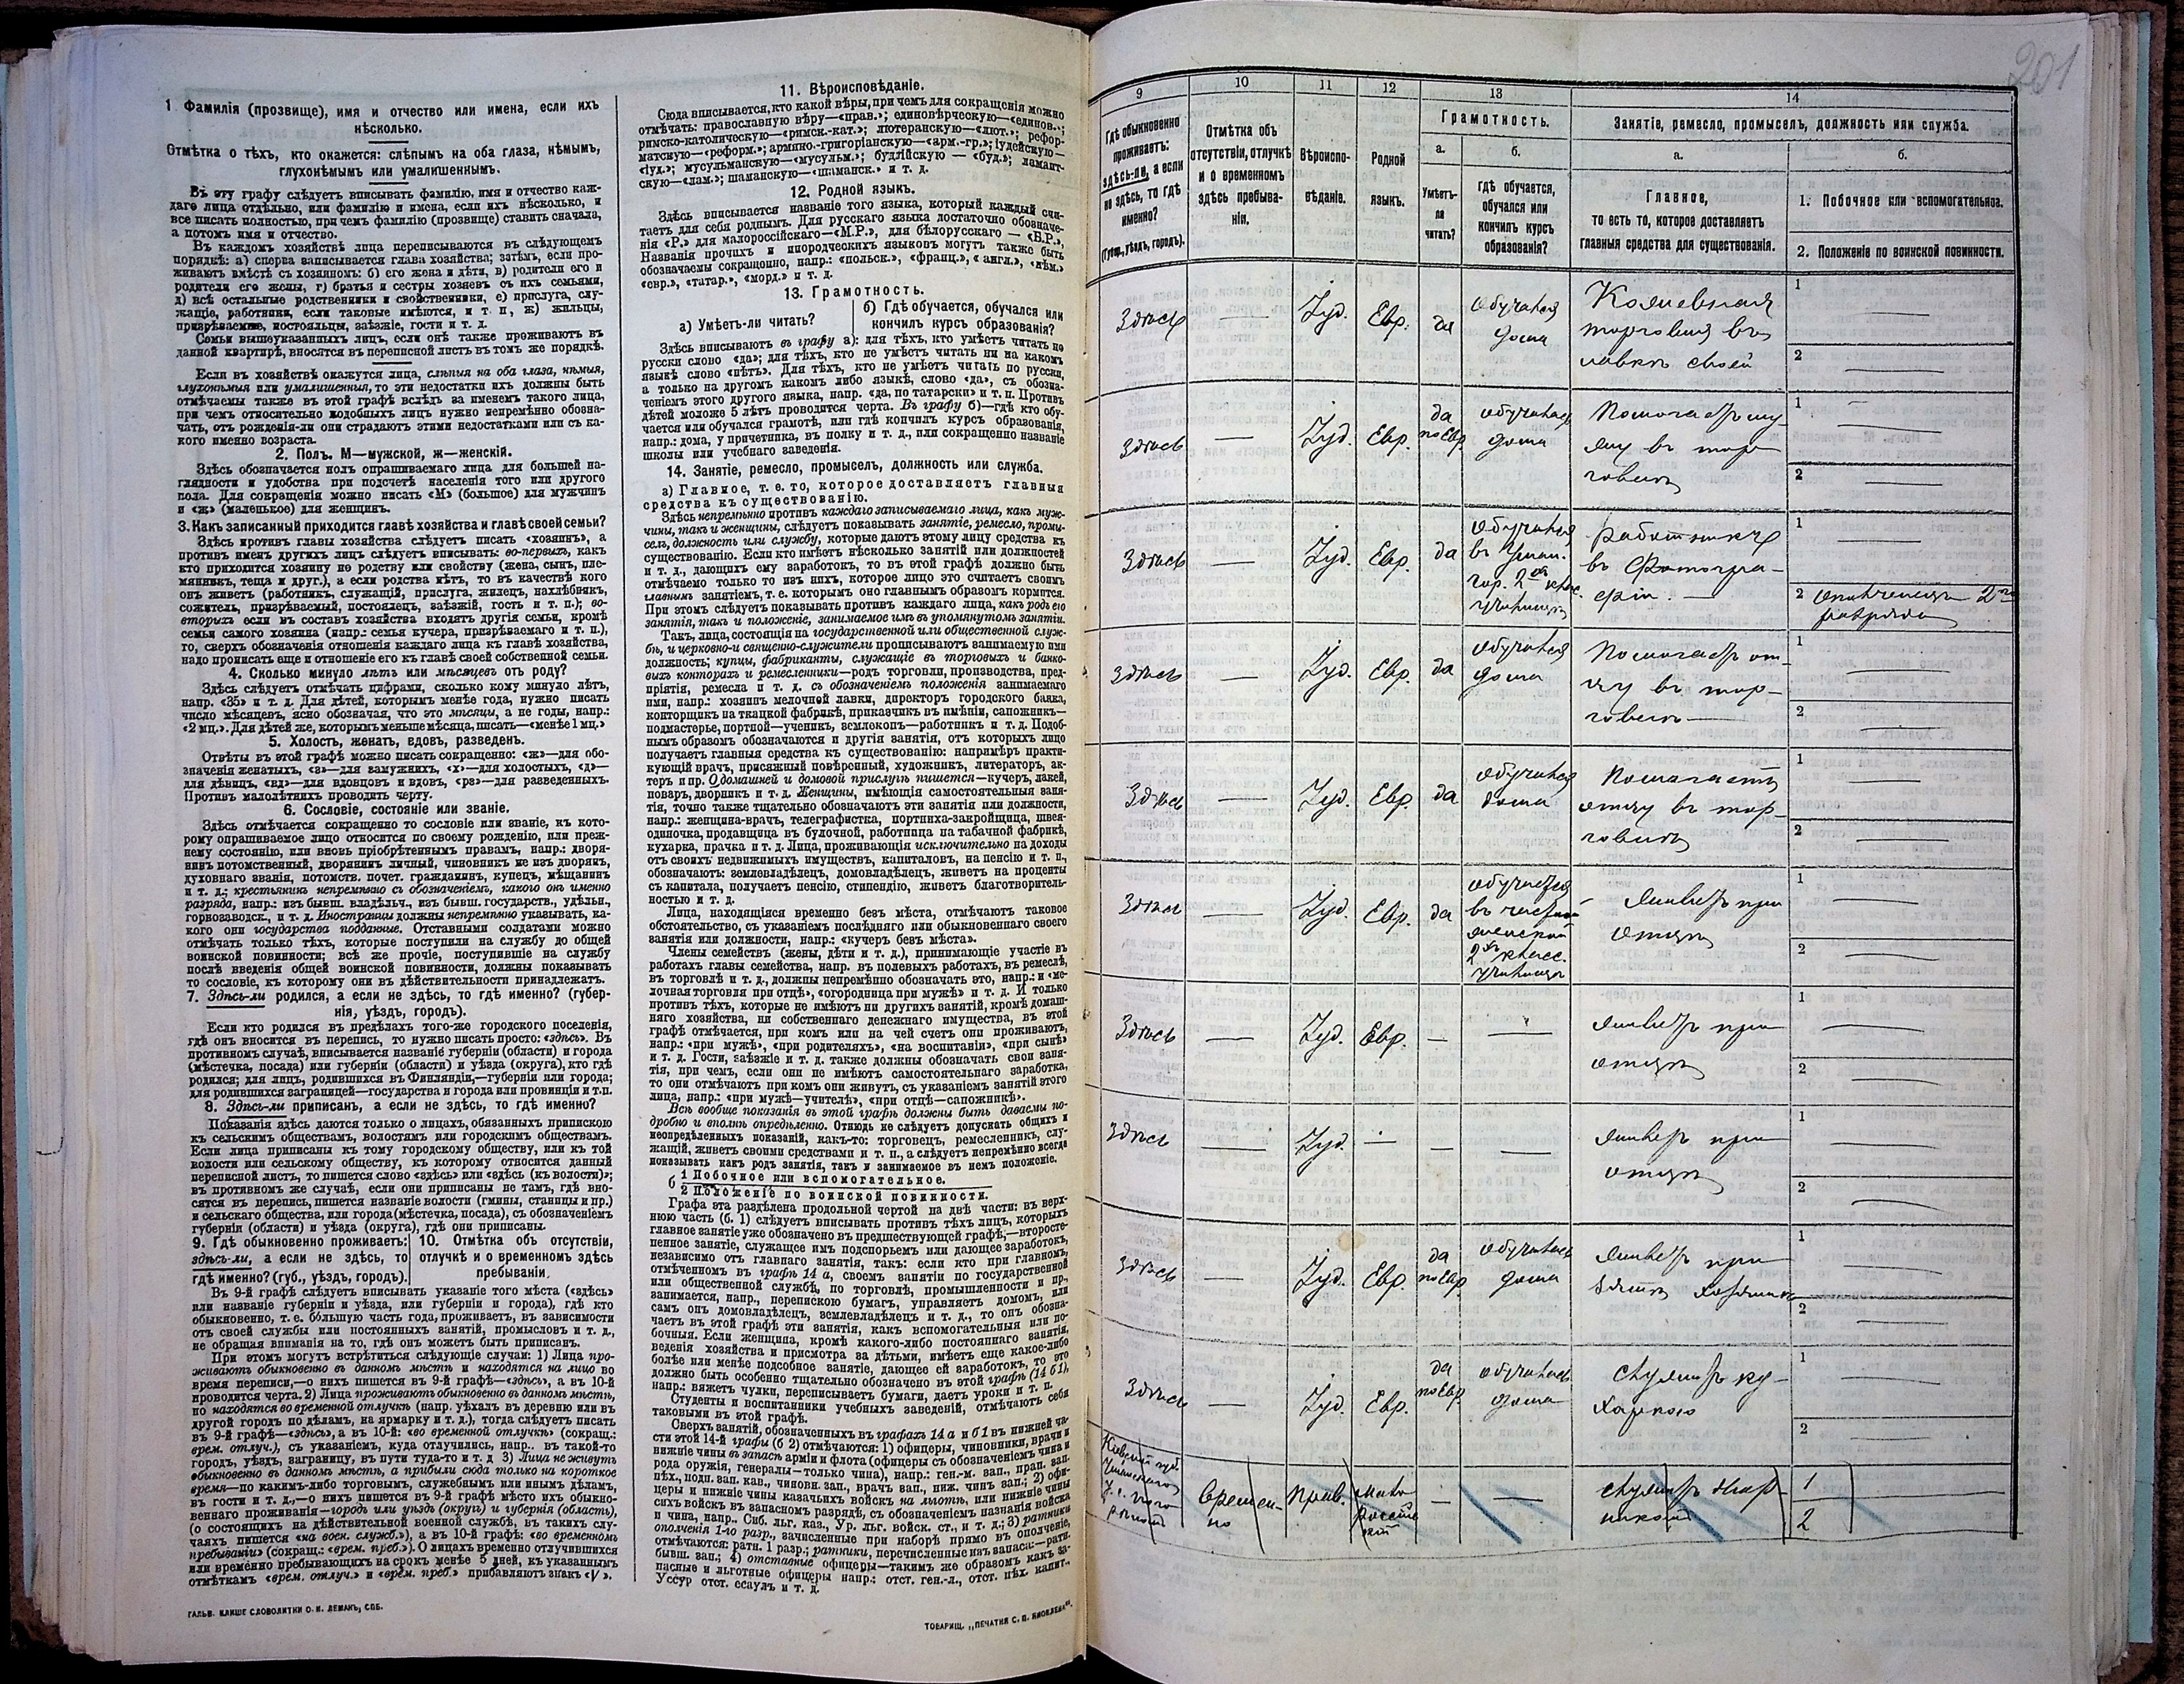 1 Фамилія (прозвище), имя и отчество или имена, если ихъ
нѣсколько.
Отмѣтка о тѣхъ, кто окажется: слѣпымъ на оба глаза, нѣмымъ,
глухонѣмымъ или умалишеннымъ.
Въ эту графу слѣдуетъ вписывать фамилію, имя и отчество каж-
даго лица отдѣльно, или фамилію и имена, если ихъ нѣсколько, и
все писать полностью, при чемъ фамилію (прозвище) ставить сначала,
а потомъ имя и отчество.
Въ каждомъ хозяйствѣ лица переписываются въ слѣдующемъ
порядкѣ: а) сперва записывается глава хозяйства; затѣмъ, если про-
живаютъ вмѣстѣ съ хозяиномъ: б) его жена и дѣти, в) родители его и
родители его жены, г) братья и сестры хозяевъ съ ихъ семьями,
д) всѣ остальные родственники и свойственники, е) прислуга, слу-
жащіе, работники, если таковые имѣются, и т. п, ж) жильцы,
призрѣваемые, постояльцы, заѣзжіе, гости и т. д.
Семьи вышеуказанныхъ лицъ, если онѣ также проживаютъ въ
данной квартирѣ, вносятся въ переписной листъ въ томъ же порядкѣ.
Если въ хозяйствѣ окажутся лица, слѣпыя на оба глаза, нѣмыя,
глухонѣмыя или умалишенныя, то эти недостатки ихъ должны быть
отмѣчаемы также въ этой графѣ вслѣдъ за именемъ такого лица,
при чемъ относительно подобныхъ лицъ нужно непремѣнно обозна-
чать, отъ рожденія-ли они страдаютъ этими недостатками или съ ка-
кого именно возраста.
2. Полъ. М—мужской, ж—женскій.
Здѣсь обозначается полъ опрашиваемаго лица для большей на-
глядности и удобства при подсчетѣ населенія того или другого
пола. Для сокращенія можно писать «М» (большое) для мужчинъ
и «ж» (маленькое) для женщинъ.
3. Какъ записанный приходится главѣ хозяйства и главѣ своей семьи?
Здѣсь противъ главы хозяйства слѣдуетъ писать «хозяинъ», а
противъ именъ другихъ лицъ слѣдуетъ вписывать: во-первыхъ, какъ
кто приходится хозяину по родству или свойству (жена, сынъ, пле-
мянникъ, теща и друг.), а если родства нѣтъ, то въ качествѣ кого
онъ живетъ (работникъ, служащій, прислуга, жилецъ, нахлѣбникъ,
сожитель, призрѣваемый, постоялецъ, заѣзжій, гость и т. п.); во-
вторыхъ если въ составъ хозяйства входятъ другія семьи, кромѣ
семьи самого хозяина (напр.: семья кучера, призрѣваемаго и т. п.),
то, сверхъ обозначенія отношенія каждаго лица къ главѣ хозяйства,
надо прописать еще и отношеніе его къ главѣ своей собственной семьи.
4. Сколько минуло лѣтъ или мѣсяцевъ отъ роду?
Здѣсь слѣдуетъ отмѣчать цифрами, сколько кому минуло лѣтъ,
напр. «35» и т. д. Для дѣтей, которымъ менѣе года, нужно писать
число мѣсяцевъ, ясно обозначая, что это мѣсяцы, а не годы, напр.:
«2 мц.». Для дѣтей же, которымъ меньше мѣсяца, писать—«менѣе 1 мц.»
5. Холостъ, женатъ, вдовъ, разведенъ.
Отвѣты въ этой графѣ можно писать сокращенно: «ж»—для обо-
значенія женатыхъ, «з»—для замужнихъ, «х»—для холостыхъ, «д»—
для дѣвицъ, «вд»—для вдовцовъ и вдовъ, «рз»—для разведенныхъ.
Противъ малолѣтнихъ проводить черту.
6. Сословіе, состояніе или званіе.
Здѣсь отмѣчается сокращенно то сословіе или званіе, къ кото-
рому опрашиваемое лицо относится по своему рожденію, или преж-
нему состоянію, или вновь пріобрѣтеннымъ правамъ, напр.: дворя-
нинъ потомственный, дворянинъ личный, чиновникъ не изъ дворянъ,
духовнаго званія, потомств. почет. гражданинъ, купецъ, мѣщанинъ
и т. д.; крестьянинъ непремѣнно съ обозначеніемъ, какого онъ именно
разряда, напр.: изъ бывш. владѣльч., изъ бывш. государств., удѣльн.,
горнозаводск., и т. д. Иностранцы должны непремѣнно указывать, ка-
кого они государства подданные. Отставными солдатами можно
отмѣчать только тѣхъ, которые поступили на службу до общей
воинской повинности; всѣ же прочіе, поступившіе на службу
послѣ введенія общей воинской повинности, должны показывать
то сословіе, къ которому они въ дѣйствительности принадлежатъ.
7. Здѣсь-ли родился, а если не здѣсь, то гдѣ именно? (губер-
нія, уѣздъ, городъ).
Если кто родился въ предѣлахъ того-же городского поселенія,
гдѣ онъ вносится въ перепись, то нужно писать просто: «здѣсь». Въ
противномъ случаѣ, вписывается названіе губерніи (области) и города
(мѣстечка, посада) или губерніи (области) и уѣзда (округа), кто гдѣ
родился; для лицъ, родившихся въ Финляндіи,—губерніи или города;
для родившихся заграницей—государства и города или провинціи и т.п.
8. Здѣсь-ли приписанъ, а если не здѣсь, то гдѣ именно?
Показанія здѣсь даются только о лицахъ, обязанныхъ припискою
къ сельскимъ обществамъ, волостямъ или городскимъ обществамъ.
Если лица приписаны къ тому городскому обществу, или къ той
волости или сельскому обществу, къ которому относится данный
переписной листъ, то пишется слово «здѣсь» или «здѣсь (къ волости)»;
въ противномъ же случаѣ, если они приписаны не тамъ, гдѣ вно-
сятся въ перепись, пишется названіе волости (гмины, станицы и пр.)
и сельскаго общества, или города (мѣстечка, посада), съ обозначеніемъ
губерніи (области) и уѣзда (округа), гдѣ они приписаны.
9. Гдѣ обыкновенно проживаетъ:
здѣсь-ли, а если не здѣсь, то
гдѣ именно? (губ., уѣздъ, городъ).
10. Отмѣтка объ отсутствіи,
отлучкѣ и о временномъ здѣсь
пребываніи.
Въ 9-й графѣ слѣдуетъ вписывать указаніе того мѣста («здѣсь»
или названіе губерніи и уѣзда, или губерніи и города), гдѣ кто
обыкновенно, т. е. большую часть года, проживаетъ, въ зависимости
отъ своей службы или постоянныхъ занятій, промысловъ и т. д.,
не обращая вниманія на то, гдѣ онъ можетъ быть приписанъ.
При этомъ могутъ встрѣтиться слѣдующіе случаи: 1) Лица про-
живаютъ обыкновенно въ данномъ мѣстѣ и находятся на лицо во
время переписи,—о нихъ пишется въ 9-й графѣ—«здѣсь», а въ 10-й
проводится черта. 2) Лица проживаютъ обыкновенно въ данномъ мѣстѣ,
но находятся во временной отлучкѣ (напр. уѣхалъ въ деревню или въ
другой городъ по дѣламъ, на ярмарку и т. д.), тогда слѣдуетъ писать
въ 9-й графѣ—«здѣсь», а въ 10-й: «во временной отлучкѣ» (сокращ.:
врем. отлуч.), съ указаніемъ, куда отлучились, напр.. въ такой-то
городъ, уѣздъ, заграницу, въ пути туда-то и т. д 3) Лица не живутъ
обыкновенно въ данномъ мѣстѣ, а прибыли сюда только на короткое
время—по какимъ-либо торговымъ, служебнымъ или инымъ дѣламъ,
въ гости и т. д.,—о нихъ пишется въ 9-й графѣ мѣсто ихъ обыкно-
веннаго проживанія—городъ или уѣздъ (округъ) и губернія (область),
(о состоящихъ на дѣйствительной военной службѣ, въ такихъ слу-
чаяхъ пишется «на воен. служб.»), а въ 10-й графѣ: «во временномъ
пребываніи» (сокращ.: «врем. преб.»). О лицахъ временно отлучившихся
или временно пребывающихъ на срокъ менѣе 5 дней, къ указаннымъ
отмѣткамъ «врем. отлуч.» и «врем. преб.» прибавляютъ знакъ «V».
ГАЛЬВ. КЛИШЕ СЛОВОЛИТНИ О. И. ЛЕМАНЪ, СПБ.
11. Вѣроисповѣданіе.
Сюда вписывается, кто какой вѣры, при чемъ для сокращенія можно
отмѣчать: православную вѣру—«прав.»; единовѣрческую—«единов.»;
римско-католическую—«римск.-кат.»; лютеранскую—«лют.»; рефор-
матскую—«реформ.»; армяно.-григоріанскую—«арм.-гр.»; іудейскую—
«іуд.»; мусульманскую—«мусульм.»; буддійскую — «буд.»; ламаит-
скую—«лам.»; шаманскую—«шаманск.» и т. д.
12. Родной языкъ.
Здѣсь вписывается названіе того языка, который каждый счи-
таетъ для себя роднымъ. Для русскаго языка достаточно обозначе-
нія «Р.» для малороссійскаго—«М.Р.», для бѣлорусскаго — «Б.Р.»,
Названія прочихъ и инородческихъ языковъ могутъ также быть
обозначаемы сокращенно, напр.: «польск.», «франц.», « англ.», «нѣм.»
«евр.», «татар.», «морд.» и т. д.
13. Грамотность.
а) Умѣетъ-ли читать?
б) Гдѣ обучается, обучался или
кончилъ курсъ образованія?
Здѣсь вписываютъ въ графу а): для тѣхъ, кто умѣетъ читать по
русски слово «да»; для тѣхъ, кто не умѣетъ читать ни на какомъ
языкѣ слово «нѣтъ». Для тѣхъ, кто не умѣетъ читать по русски,
а только на другомъ какомъ либо языкѣ, слово «да», съ обозна-
ченіемъ этого другого языка, напр. «да, по татарски» и т. п. Противъ
дѣтей моложе 5 лѣтъ проводится черта. Въ графу б)—гдѣ кто обу-
чается или обучался грамотѣ, или гдѣ кончилъ курсъ образованія,
напр.: дома, у причетника, въ полку и т. д., или сокращенно названіе
школы или учебнаго заведенія.
14. Занятіе, ремесло, промыселъ, должность или служба.
а) Главное, т. е. то, которое доставляетъ главныя
средства къ существованію.
Здѣсь непремѣнно противъ каждаго записываемаго лица, какъ муж-
чины, такъ и женщины, слѣдуетъ показывать занятіе, ремесло, промы-
селъ, должность или службу, которые даютъ этому лицу средства къ
существованію. Если кто имѣетъ нѣсколько занятій или должностей
и т. д., дающихъ ему заработокъ, то въ этой графѣ должно быть
отмѣчаемо только то изъ нихъ, которое лицо это считаетъ своимъ
главнымъ занятіемъ, т. е. которымъ оно главнымъ образомъ кормится.
При этомъ слѣдуетъ показывать противъ каждаго лица, какъ родъ его
занятія, такъ и положеніе, занимаемое имъ въ упомянутомъ занятіи.
Такъ, лица, состоящія на государственной или общественной служ-
бѣ, и церковно-и священно-служители прописываютъ занимаемую ими
должность; купцы, фабриканты, служащіе въ торговыхъ и банко-
выхъ конторахъ и ремесленники—родъ торговли, производства, пред-
пріятія, ремесла и т. д. съ обозначеніемъ положенія занимаемаго
ими, напр.: хозяинъ мелочной лавки, директоръ городского банка,
конторщикъ на ткацкой фабрикѣ, приказчикъ въ имѣніи, сапожникъ—
подмастерье, портной—ученикъ, землекопъ—работникъ и т. д. Подоб-
нымъ образомъ обозначаются и другія занятія, отъ которыхъ лицо
получаетъ главныя средства къ существованію: напримѣръ практи-
кующій врачъ, присяжный повѣренный, художникъ, литераторъ, ак-
теръ и пр. О домашней и домовой прислугѣ пишется—кучеръ, лакей,
поваръ, дворникъ и т. д. Женщины, имѣющія самостоятельныя заня-
тія, точно также тщательно обозначаютъ эти занятія или должности,
напр.: женщина-врачъ, телеграфистка, портниха-закройщица, швея-
одиночка, продавщица въ булочной, работница на табачной фабрикѣ,
кухарка, прачка и т. д. Лица, проживающія исключительно на доходы
отъ своихъ недвижимыхъ имуществъ, капиталовъ, на пенсію и т. п.,
обозначаютъ: землевладѣлецъ, домовладѣлецъ, живетъ на проценты
съ капитала, получаетъ пенсію, стипендію, живетъ благотворитель-
ностью и т. д.
Лица, находящіяся временно безъ мѣста, отмѣчаютъ таковое
обстоятельство, съ указаніемъ послѣдняго или обыкновеннаго своего
занятія или должности, напр.: «кучеръ безъ мѣста».
Члены семействъ (жены, дѣти и т. д.), принимающіе участіе въ
работахъ главы семейства, напр. въ полевыхъ работахъ, въ ремеслѣ,
въ торговлѣ и т. д., должны непремѣнно обозначать это, напр.: и «ме-
лочная торговля при отцѣ», «огородница при мужѣ» и т. д. И только
противъ тѣхъ, которые не имѣютъ ни другихъ занятій, кромѣ домаш-
няго хозяйства, ни собственнаго денежнаго имущества, въ этой
графѣ отмѣчается, при комъ или на чей счетъ они проживаютъ,
напр.: «при мужѣ», «при родителяхъ», «на воспитаніи», «при сынѣ»
и т. д. Гости, заѣзжіе и т. д. также должны обозначать свои заня-
тія, при чемъ, если они не имѣютъ самостоятельнаго заработка,
то они отмѣчаютъ при комъ они живутъ, съ указаніемъ занятій этого
лица, напр.: «при мужѣ—учителѣ», «при отцѣ—сапожникѣ».
Всѣ вообще показанія въ этой графѣ должны быть даваемы по-
дробно и вполнѣ опредѣленно. Отнюдь не слѣдуетъ допускать общихъ и
неопредѣленныхъ показаній, какъ-то: торговецъ, ремесленникъ, слу-
жащій, живетъ своими средствами и т. п., а слѣдуетъ непремѣнно всегда
показывать какъ родъ занятія, такъ и занимаемое въ немъ положеніе.
б 1 Побочное или вспомогательное.
2 Положеніе по воинской повинности.
Графа эта раздѣлена продольной чертой на двѣ части: въ верх-
нюю часть (б. 1) слѣдуетъ вписывать противъ тѣхъ лицъ, которыхъ
главное занятіе уже обозначено въ предшествующей графѣ,—второсте-
пенное занятіе, служащее имъ подспорьемъ или дающее заработокъ,
независимо отъ главнаго занятія, такъ: если кто при главномъ,
отмѣченномъ въ графѣ 14 а, своемъ занятіи по государственной
или общественной службѣ, по торговлѣ, промышленности и пр.,
занимается, напр., перепискою бумагъ, управляетъ домомъ, или
самъ онъ домовладѣлецъ, землевладѣлецъ и т. д., то онъ обозна-
чаетъ въ этой графѣ эти занятія, какъ вспомогательныя или по-
бочныя. Если женщина, кромѣ какого-либо постояннаго занятія,
веденія хозяйства и присмотра за дѣтьми, имѣетъ еще какое-либо
болѣе или менѣе подсобное занятіе, дающее ей заработокъ, то это
должно быть особенно тщательно обозначено въ этой графѣ (14 б 1),
напр.: вяжетъ чулки, переписываетъ бумаги, даетъ уроки и т. п.
Студенты и воспитанники учебныхъ заведеній, отмѣчаютъ себя
таковыми въ этой графѣ.
Сверхъ занятій, обозначенныхъ въ графахъ 14 а и б 1 въ нижней ча-
сти этой 14-й графы (б 2) отмѣчаются: 1) офицеры, чиновники, врачи и
нижніе чины въ запасѣ арміи и флота (офицеры съ обозначеніемъ чина и
рода оружія, генералы—только чина), напр.: ген.-м. зап., прап. зап.
пѣх., подп. зап. кав., чиновн. зап., врачъ зап., ниж. чинъ зап.; 2) офи-
церы и нижніе чины казачьихъ войскъ на льготѣ, или нижніе чины
сихъ войскъ въ запасномъ разрядѣ, съ обозначеніемъ названія войска
и чина, напр.. Сиб. льг. каз., Ур. льг. войск. ст., и т. д.; 3) ратники
ополченія 1-го разр., зачисленные при наборѣ прямо въ ополченіе,
отмѣчаются: ратн. 1 разр.; ратники, перечисленные изъ запаса:—ратн.
бывш. зап.; 4) отставные офицеры—такимъ же образомъ какъ за-
пасные и льготные офицеры напр.: отст. ген.-л., отст. пѣх. капит.,
Уссур отст. есаулъ и т. д.
ТОВАРИЩ. „ПЕЧАТНЯ С. П. ЯКОВЛЕВА“.
201
9 10 11 12 13 14
Гдѣ обыкновенно
проживаетъ:
здѣсь-ли, а если
не здѣсь, то гдѣ
именно?
(Губер., уѣздъ, городъ).
Отмѣтка объ
отсутствіи, отлучкѣ
и о временномъ
здѣсь пребыва-
ніи.
Вѣроиспо-
вѣданіе.
Родной
языкъ.
Грамотность.
а.
Умѣетъ-
ли
читать?
б.
гдѣ обучается,
обучался или
кончилъ курсъ
образованія?
Занятіе, ремесло, промыселъ, должность или служба.
а.
Главное,
то есть то, которое доставляетъ
главныя средства для существованія.
б.
1. Побочное или вспомогательное.
2. Положеніе по воинской повинности.
Здѣсь — Іуд. Евр. да
обучался
дома
торговля въ
лавкѣ своей
1 —
2 —
Здѣсь — Іуд. Евр.
да
по Евр.
обучалась
дома
Помогаетъ му-
жу въ тор-
говлѣ
1 —
2 —
Здѣсь — Іуд. Евр. да
обучался
въ Уман.
гор. 2хъ клас.
училищѣ
работникъ
въ Фотогра-
фіи. —
1 —
2 ополченецъ 2го
разряда
Здѣсь — Іуд. Евр. да
обучался
дома
Помогаетъ от-
цу въ тор-
говлѣ —
1 —
2 —
Здѣсь — Іуд. Евр. да
обучался
дома
Помогаетъ
отцу въ тор-
говлѣ
1 —
2 —
Здѣсь — Іуд. Евр. да
обучается
въ частной
женской
2хъ класс.
училищѣ
Живетъ при
отцѣ
1 —
2 —
Здѣсь — Іуд. Евр. — —
Живетъ при
отцѣ
1 —
2 —
Здѣсь — Іуд. — — —
Живетъ при
отцѣ
1 —
2 —
Здѣсь — Іуд. Евр.
да
по Евр.
обучалась
дома
Живетъ при
зятѣ
1 —
2 —
Здѣсь — Іуд. Евр.
да
по Евр.
обучалась
дома
Служитъ ку-
харкою
1 —
2 —
Кіевской губ.
Уманского
у.
Времен-
но
Прав.
мало
россій
скій
— —
служитъ
1
2